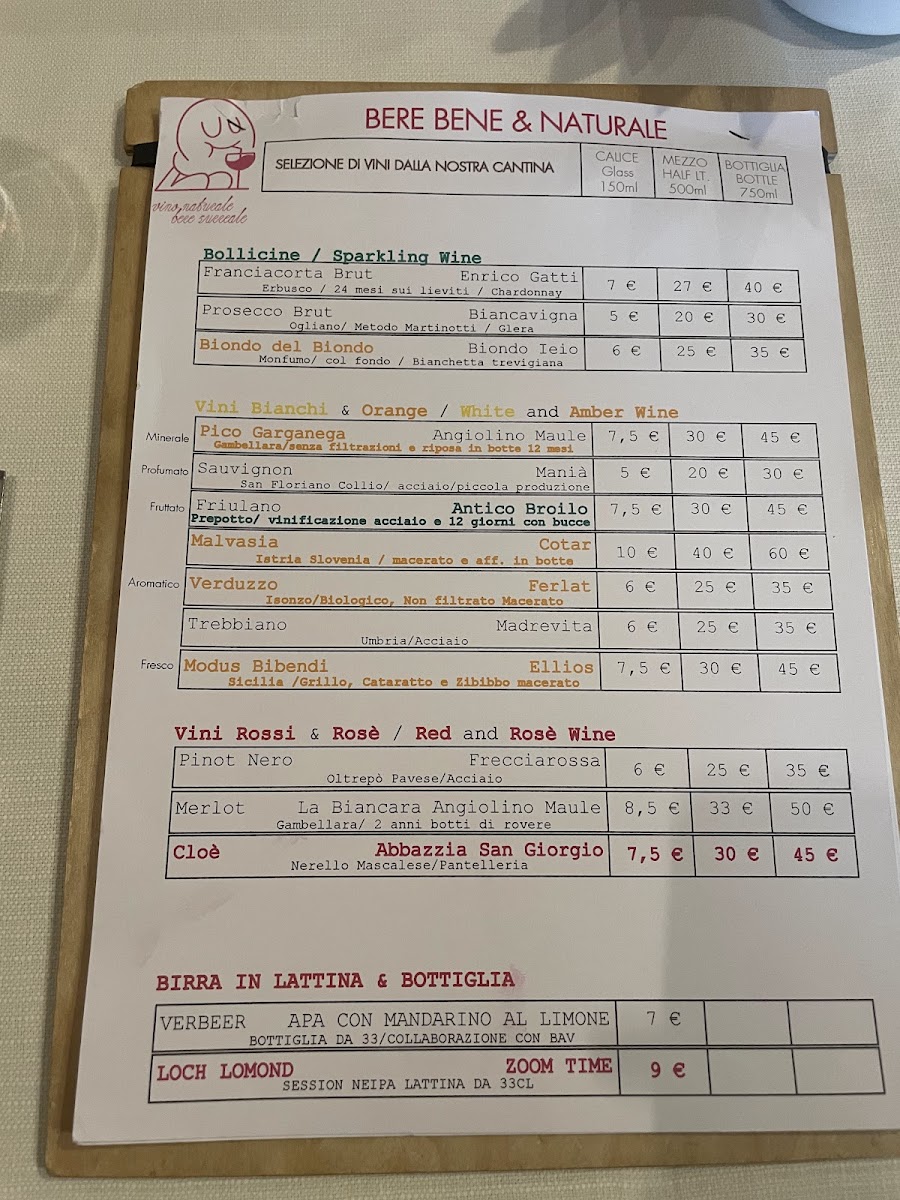 BERE BENE & NATURALE
SELEZIONE DI VINI DALLA NOSTRA CANTINA
CALICE
Glass
150ml
MEZZO
HALF LT.
500ml
BOTTIGLIA
BOTTLE
750ml
vino naturale
Bollicine / Sparkling Wine
Franciacorta Brut Enrico Gatti 7 € 27 € 40 €
Erbusco / 24 mesi sui lieviti / Chardonnay
Prosecco Brut Biancavigna 5 € 20 € 30 €
Ogliano/ Metodo Martinotti / Glera
Biondo del Biondo Biondo Ieio 6 € 25 € 35 €
Monfumo/ col fondo / Bianchetta trevigiana
Vini Bianchi & Orange / White and Amber Wine
Minerale Pico Garganega Angiolino Maule 7,5 € 30 € 45 €
Gambellara/senza filtrazioni e riposa in botte 12 mesi
Profumato Sauvignon Manià 5 € 20 € 30 €
San Floriano Collio/ acciaio/piccola produzione
Fruttato Friulano Antico Broilo 7,5 € 30 € 45 €
Prepotto/ vinificazione acciaio e 12 giorni con bucce
Malvasia Cotar 10 € 40 € 60 €
Istria Slovenia / macerato e aff. in botte
Aromatico Verduzzo Ferlat 6 € 25 € 35 €
Isonzo/Biologico, Non filtrato Macerato
Trebbiano Madrevita 6 € 25 € 35 €
Umbria/Acciaio
Fresco Modus Bibendi Ellios 7,5 € 30 € 45 €
Sicilia /Grillo, Cataratto e Zibibbo macerato
Vini Rossi & Rosè / Red and Rosè Wine
Pinot Nero Frecciarossa 6 € 25 € 35 €
Oltrepò Pavese/Acciaio
Merlot La Biancara Angiolino Maule 8,5 € 33 € 50 €
Gambellara/ 2 anni botti di rovere
Cloè Abbazzia San Giorgio 7,5 € 30 € 45 €
Nerello Mascalese/Pantelleria
BIRRA IN LATTINA & BOTTIGLIA
VERBEER APA CON MANDARINO AL LIMONE 7 €
BOTTIGLIA DA 33/COLLABORAZIONE CON BAV
LOCH LOMOND ZOOM TIME 9 €
SESSION NEIPA LATTINA DA 33CL